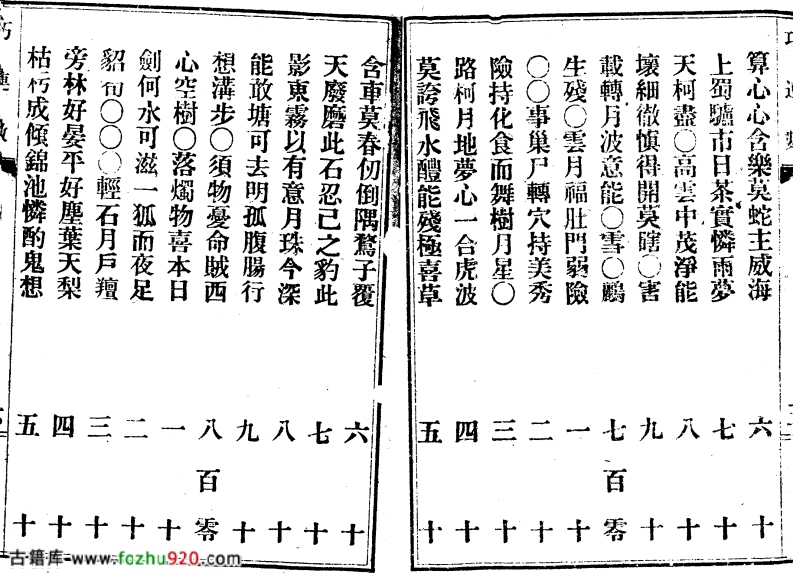 算心心含樂莫蛇主威海 六十
上蜀驢市日茶實憐雨夢 七十
天柯盡〇高雲中茂淨能 八十
壞細徹慎得開莫瞎〇害 九十
載轉月波意能〇雪〇鸝 七百零
生殘〇雲月福肚門弱險 一十
〇〇事巢尸轉穴持美秀 二十
險持化食而舞樹月星〇 三十
路柯月地夢心一合虎波 四十
莫誇飛水醴能殘極喜草 五十
含車莫春仞倒隅鶩子覆 六十
天廢磨此石忍己之豹此 七十
影東霧以有意月珠今深 八十
能敢塘可去明孤腹腸行 九十
想溝步〇須物憂命賊西 八百零
心空樹〇落燭物喜本日 一十
劍何水可滋一狐而夜足 二十
貂〇〇〇輕石月戶羶 三十
旁林好晏平好塵葉天梨 四十
枯朽成傾錦池憐酌鬼想 五十
古籍库-www.fozhu920.com